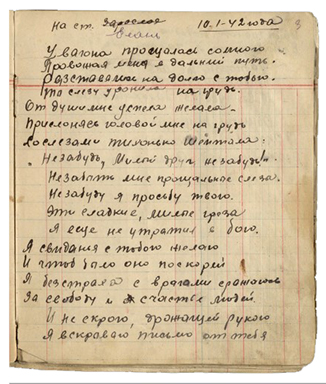 На ст. Заросная 10.1-42 года 3
У вагона прощалась со мною
Провожая меня в дальний путь.
Разставаяс на долго с тобою.
ты слезу уронила на грудь.
От души мне успеха желала.
Прислонясь головой мне на грудь
Со слезами тихонько шептала:
Незабудь, Милой друг незабудь!.
Незабыть мне прощальное слеза.
Незабуду я просьбу твою.
Эти сладкие, милые греза
Я еще не утратил в бою.
Я свиданья с тобою желаю
И чтоб было оно поскорей
Я безстрашно с врагами сражаюсь
За свободу и счастье людей.
И не скрою, дражащей рукою
Я вскрываю письмо от тебя